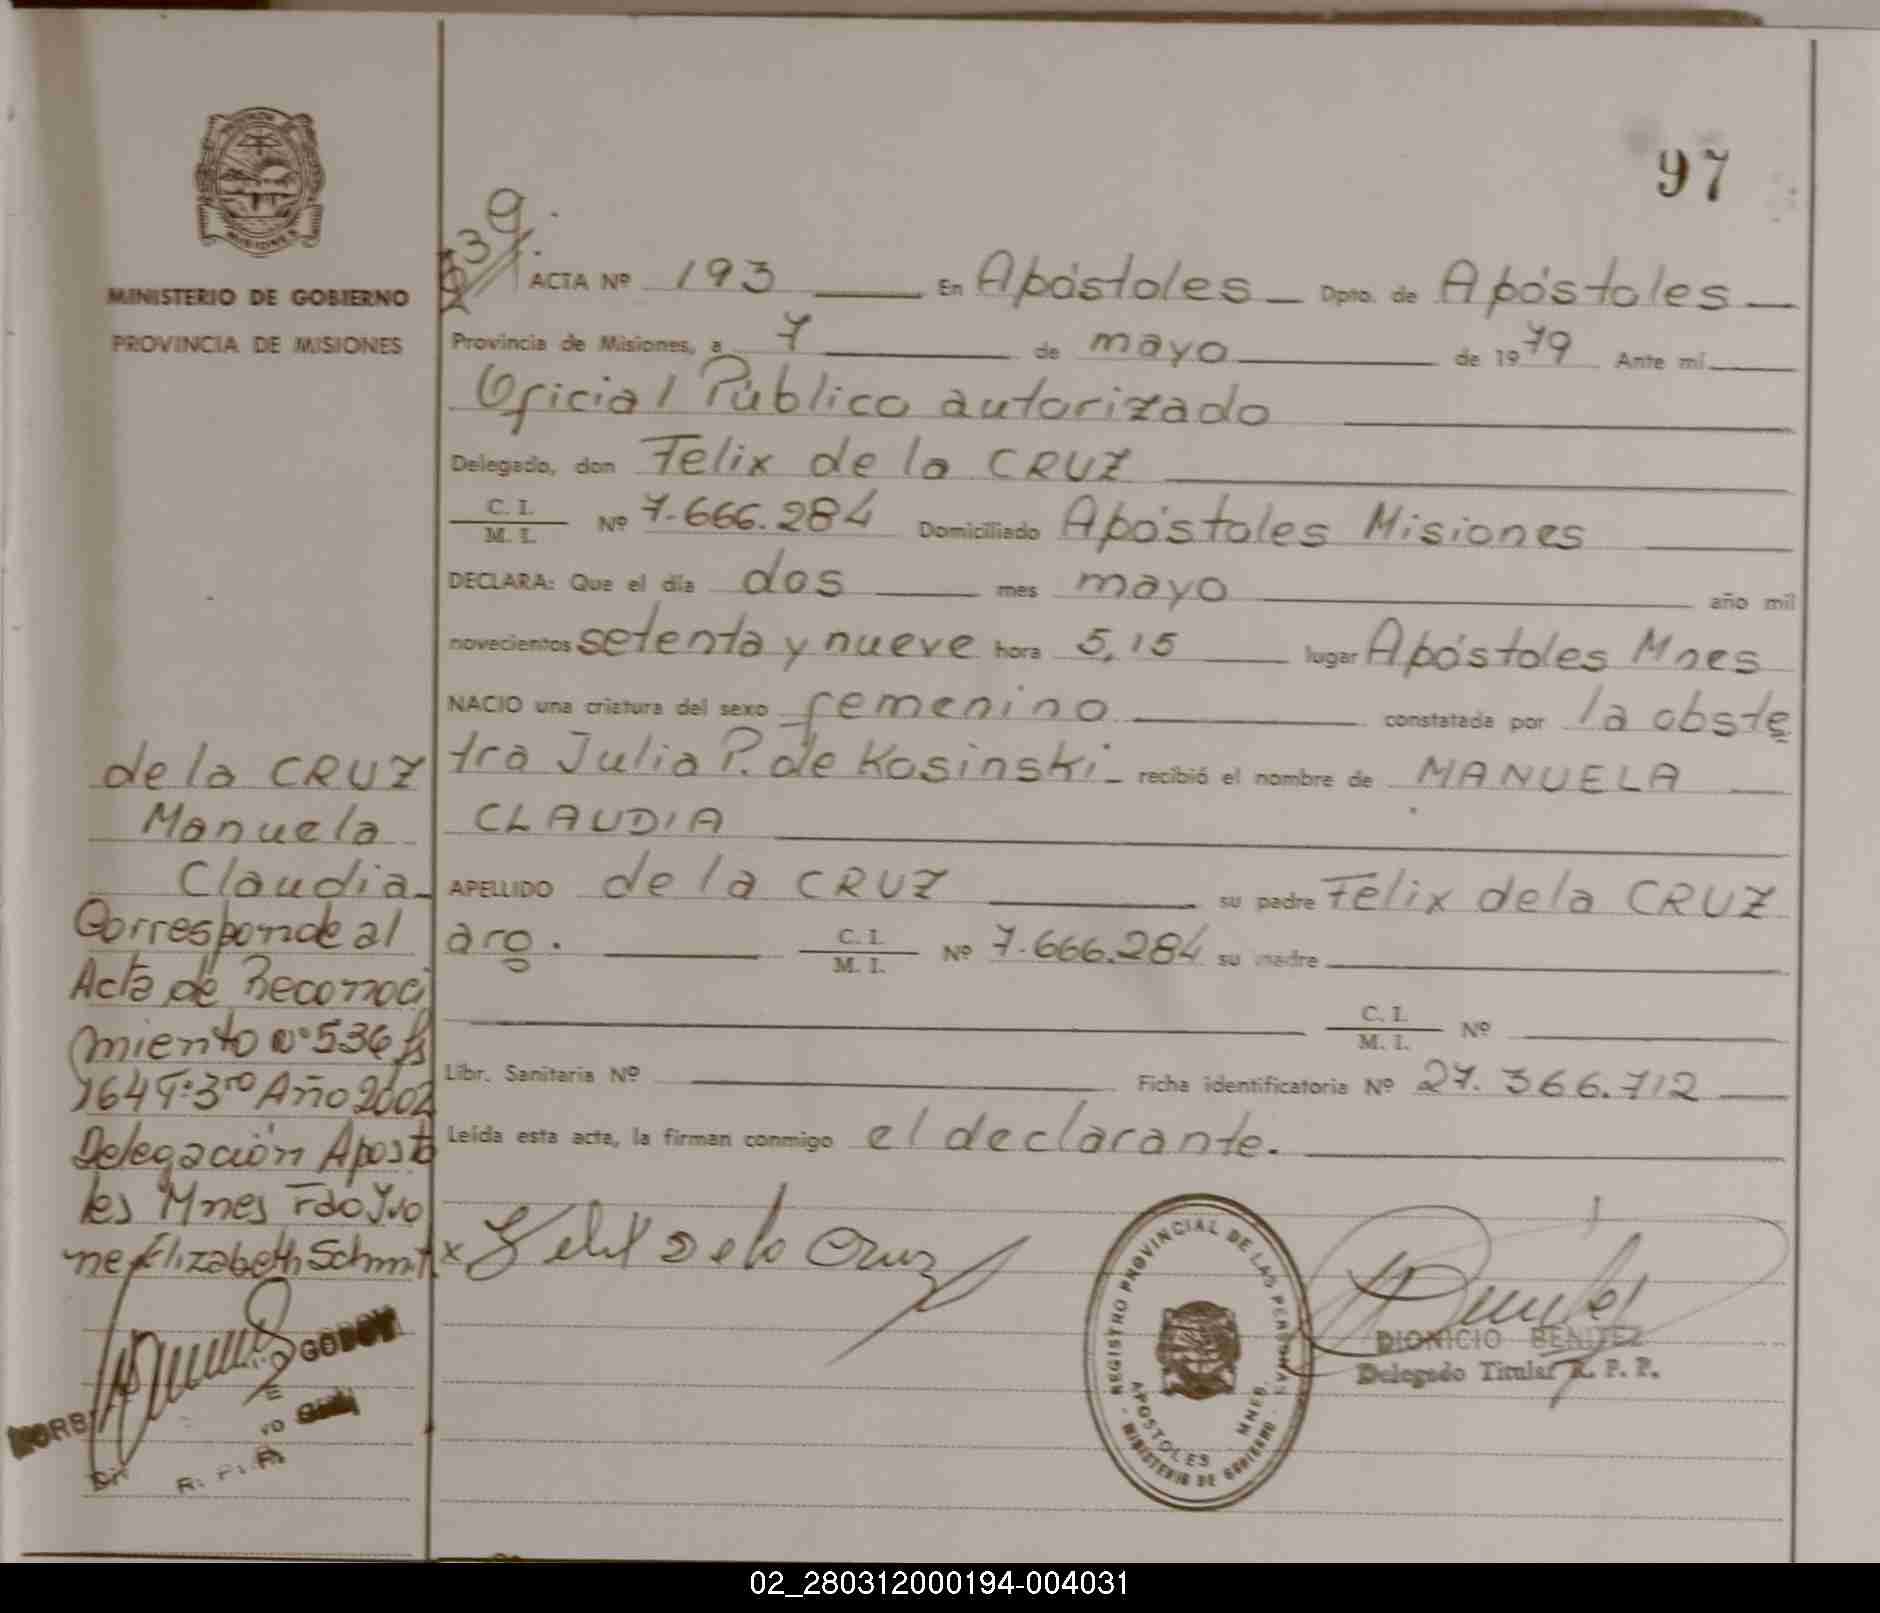 97
MISIONES
MINISTERIO DE GOBIERNO
PROVINCIA DE MISIONES
ACTA Nº 193 En Apóstoles Dpto. de Apóstoles
Provincia de Misiones, a 7 de mayo de 1979 Ante mí
Oficial Público autorizado
Delegado, don Felix de la CRUZ
C. I. / M. I. Nº 7.666.284 Domiciliado Apóstoles Misiones
DECLARA: Que el día dos mes mayo año mil
novecientos setenta y nueve hora 5,15 lugar Apóstoles Mnes
NACIO una criatura del sexo femenino constatada por la obste
tra Julia P. de Kosinski recibió el nombre de MANUELA
CLAUDIA
APELLIDO de la CRUZ su padre Felix de la CRUZ
arg. C. I. / M. I. Nº 7.666.284 su madre
C. I. / M. I. Nº
Libr. Sanitaria Nº Ficha identificatoria Nº 27.366.712
Leída esta acta, la firman conmigo el declarante.
de la CRUZ
Manuela
Claudia
Corresponde al
Acta de Reconoci
miento nº 536 fs
164 Tº 3ro Año 2002
Delegación Aposto
les Mnes Fdo Yvo
ne Elizabeth Schmit
x Felix de la Cruz
REGISTRO PROVINCIAL DE LAS PERSONAS
APOSTOLES MNES.
MINISTERIO DE GOBIERNO
DIONICIO BENITEZ
Delegado Titular R. P. P.
GODOY
R. P. P.
02_280312000194-004031